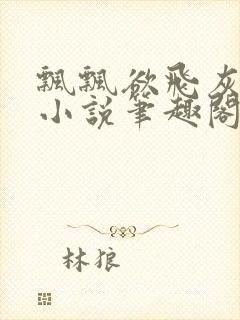 飄飄欲飛灰
小說筆趣閣
林狼